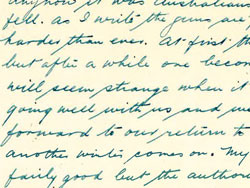 anyhow it was Australian
fell. As I write the guns are
harder than ever. At first th
but after a while one becom
will seem strange when it
going well with us and we
forward to our return to
another winter comes on. My
fairly good but the author